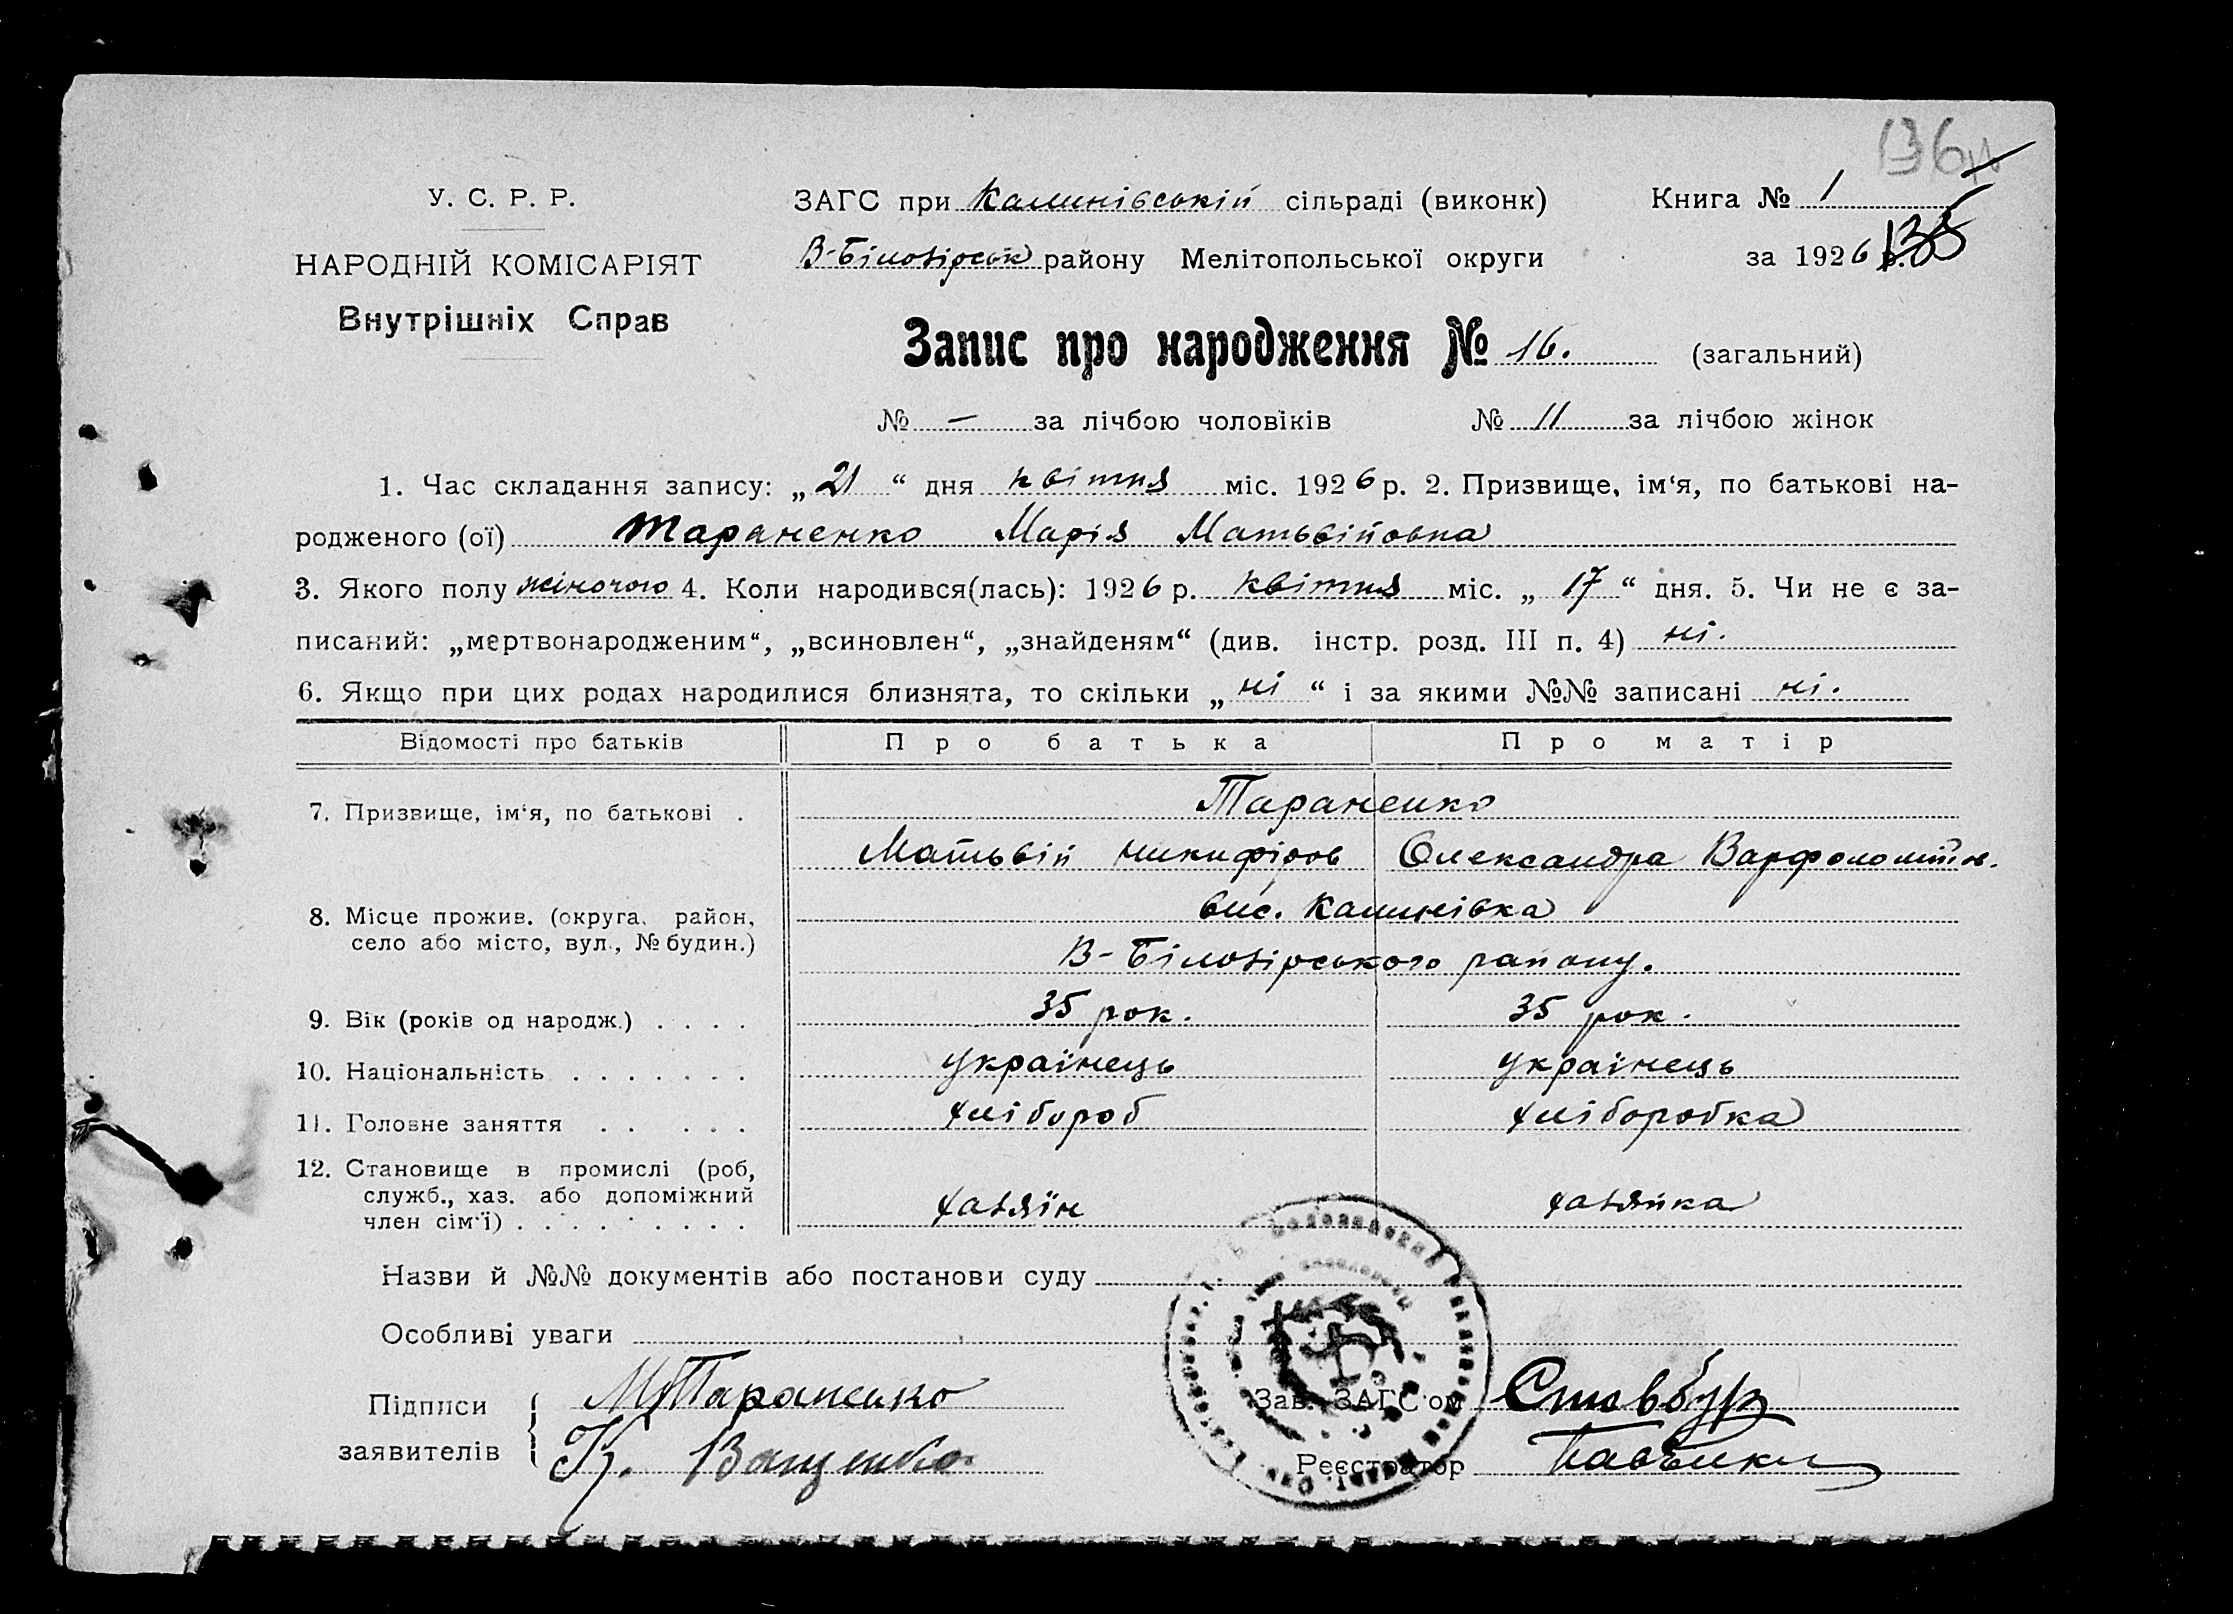 136
У. С. Р. Р. ЗАГС при Калинівській сільраді (виконк) Книга № 1
НАРОДНІЙ КОМІСАРІЯТ В-Білозірськ району Мелітопольської округи за 1926 р. 135
Внутрішніх Справ
Запис про народження № 16. (загальний)
№ — за лічбою чоловіків № 11 за лічбою жінок
1. Час складання запису: „21“ дня квітня міс. 1926 р. 2. Призвище, ім‘я, по батькові на-
родженого (ої) Тараненко Марія Матьвійовна
3. Якого полу жіночого 4. Коли народився(лась): 1926 р. квітня міс. „17“ дня. 5. Чи не є за-
писаний: „мертвонародженим“, „всиновлен“, „знайденям“ (див. інстр. розд. III п. 4) ні.
6. Якщо при цих родах народилися близнята, то скільки „ні“ і за якими №№ записані ні.
Відомості про батьків Про батька Про матір
7. Призвище, ім‘я, по батькові . Тараненко
Матьвій Никифіров Олександра Варфоломійов.
8. Місце прожив. (округа, район, вис. Калинівка
село або місто, вул., № будин.) В-Білозірського району.
9. Вік (років од народж.) . . . . 35 рок. 35 рок.
10. Національність . . . . . . . українець українець
11. Головне заняття . . . . . хлібороб хліборобка
12. Становище в промислі (роб,
служб., хаз. або допоміжний
член сім‘ї) . . . . . . . . . хазяїн хазяйка
Назви й №№ документів або постанови суду
Особливі уваги
Підписи М Тараненко Зав. ЗАГС‘ом Стовбур
заявителів К. Ващенко Реєстратор